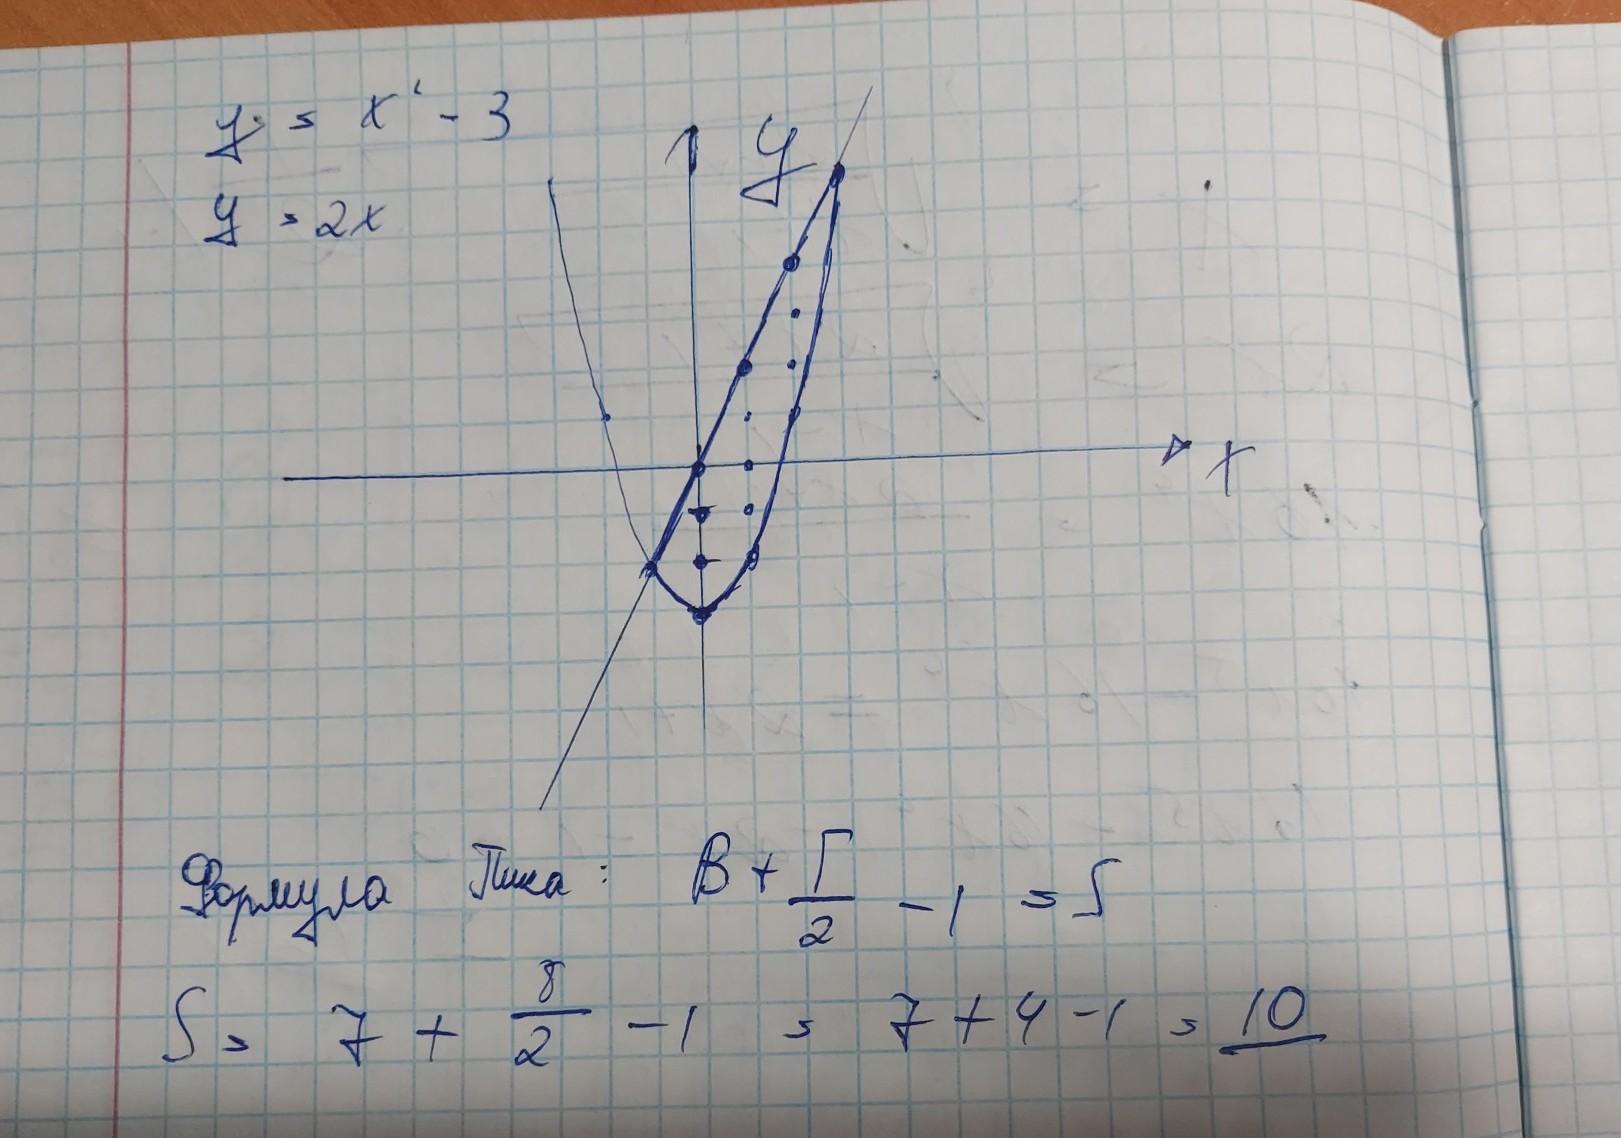 y = x² - 3
y = 2x
y
x
Формула Пика: В + Г/2 - 1 = S
S = 7 + 8/2 - 1 = 7 + 4 - 1 = 10